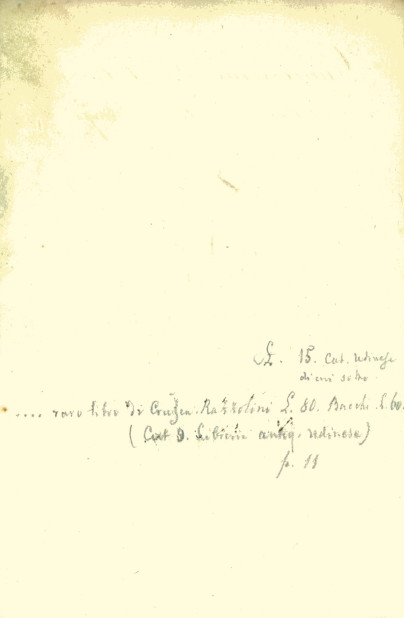 L. 15. Cat. Udinese
di cui sotto
.... raro libro di Crusca. Razzolini L. 80. Bacchi L. 60.
( Cat 9. Libreria antiq. udinese)
p. 11